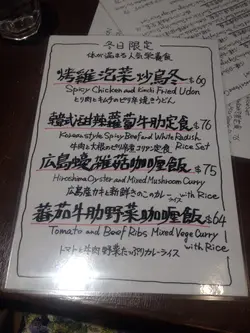 冬日限定
体が温まる人気栄養食
烤雞泡菜炒烏冬 $69
Spicy Chicken and Kimchi Fried Udon
とり肉とキムチのピリ辛焼きうどん
韓式甜辣蘿蔔牛肋定食 $76
Korean style Spicy Beef and White Radish Rice Set
牛肉と大根のピリ辛
広島蠔雜菇咖喱飯 $75
Hiroshima Oyster and Mixed Mushroom Curry with Rice
広島産カキと新鮮きのこカレーライス
蕃茄牛肋野菜咖喱飯 $64
Tomato and Beef Ribs Mixed Vege Curry with Rice
トマトと牛肉野菜たっぷりカレーライス